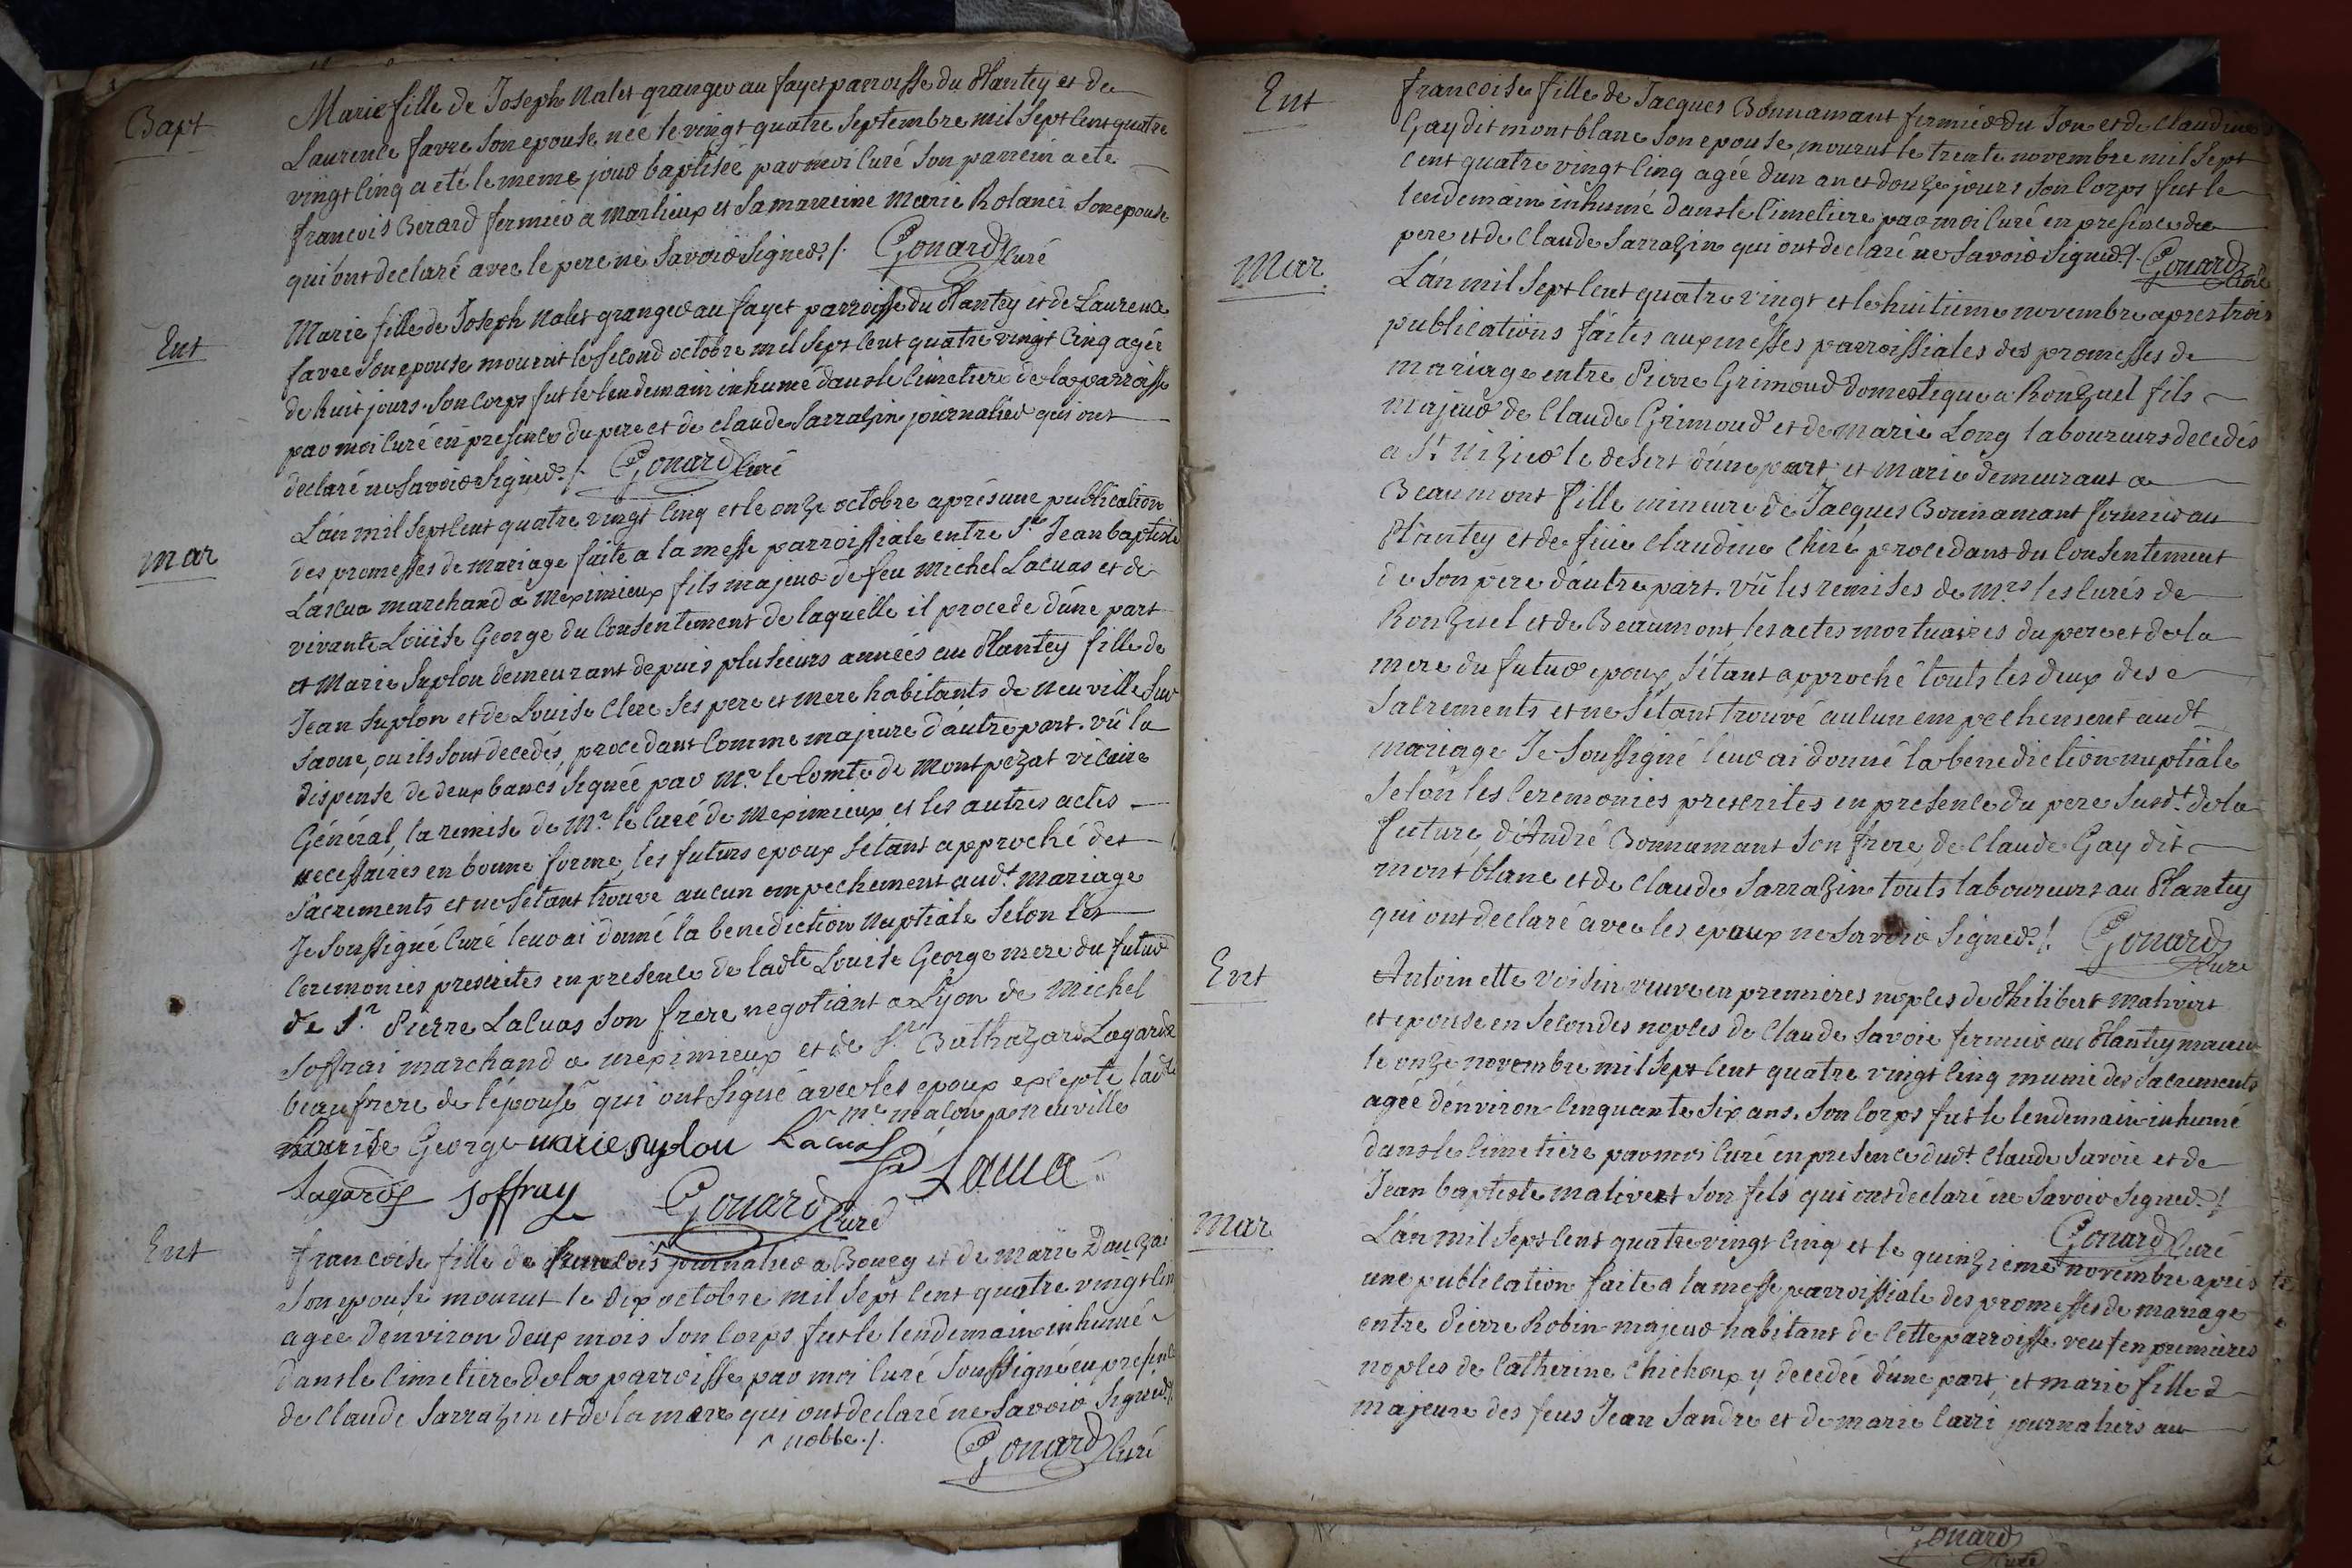 Bapt
Marie fille de Joseph Nalet granger au fayet parroisse du Plantey et de
Laurence favre son epouse née le vingt quatre Septembre mil Sept cent quatre
vingt cinq a eté le meme jour baptisée par moi Curé Son parrein a ete
francois Berard fermier a Marlieux et Sa marreine Marie Rolanci Son epouse
qui ont declaré avec le pere ne Savoir Signer ./. Gonard Curé
Ent
Marie fille de Joseph Nalet granger au fayet parroisse du Plantey et de Laurence
favre Son epouse mourut le Second octobre mil Sept cent quatre vingt Cinq agée
de huit jours. Son Corps fut le lendemain inhumé dans le Cimetiere de la parroisse
par moi Curé en presence du pere et de claude Sarrazin journalier qui ont
declaré ne Savoir Signer ./. Gonard Curé
mar
L'an mil Sept Cent quatre vingt Cinq et le onze octobre après une publication
des promesses de mariage faite a la messe parroissiale entre Sr. Jean baptiste
Lacua marchand a Meximieux fils majeur de feu Michel Lacuas et de
vivante Loüise George du Consentement de laquelle il procede d'une part
et Marie Suplon demeurant depuis plusieurs années au Plantey fille de
Jean Suplon et de Louise Clere Ses pere et mere habitants de Neuville Sur
Saone, ou ils Sont decedés, procedant Comme majeure d'autre part. vû la
dispense de deux bancs Signée par Mr. le Comte de Montpezat vicaire
Général, la remise de Mr. le Curé de Meximieux et les autres actes
necessaires en bonne forme, les futurs epoux S'etant approché des
Sacrements et ne S'etant trouvé aucun empechement audt. mariage
Je Soussigné Curé leur ai donné la benediction Nuptiale Selon les
Ceremonies prescrites en presence de ladte Louise George mere du futur
de Sr. Pierre Lacuas Son frere negotiant a Lyon de Michel
Soffrai marchand a meximieux et de Sr. Balthazard Lagarde
beaufrere de l'épouse qui ont Signé avec les epoux excepte ladte
Louise George marie suplon Lacuas
Lagarde Soffray Gonard Curé Lacua
Ent
francoise fille de francois journalier a Bourg et de marie Dauzai
Son epouse mourut le dix octobre mil Sept Cent quatre vingt Cinq
agée d'environ deux mois Son Corps fut le lendemain inhumé
dans le Cimetiere de la parroisse par moi Curé Soussigné en presence
de Claude Sarrazin et de la mere qui ont declaré ne Savoir Signer ./.
^ noble ./. Gonard Curé
Ent
francoise fille de Jacques Bonnamant fermier du Jon et de Claudine
Gay dit mont blanc Son epouse mourut le trente novembre mil Sept
Cent quatre vingt Cinq agée d'un an et douze jours Son Corps fut le
lendemain inhumé dans le Cimetiere par moi Curé en presence du
pere et de Claude Sarrazin qui ont declaré ne Savoir Signer ./. Gonard Curé
Mar
L'an mil Sept Cent quatre vingt et le huitieme novembre apres trois
publications faites aux messes parroissiales des promesses de
mariage entre Pierre Grimoud domestique a Ronzuel fils
majeur de Claude Grimoud et de marie Long laboureurs decedés
a St. Nizier le desert d'une part et Marie demeurant a
Beaumont fille mineure de Jacques Bonnamant fermier au
Plantey et de feüe Claudine Chiré procedant du Consentement
de Son pere d'autre part. vû les remises de Mrs les Curés de
Ronzuel et de Beaumont, les actes mortuaires du pere et de la
mere du futur epoux, S'étant approché touts les deux des
Sacrements et ne S'étant trouvé aucun empechement audt
mariage Je Soussigné leur ai donné la benediction nuptiale
Selon les Ceremonies prescrites en presence du pere Susdt. de la
future, d'André Bonnamant Son frere, de Claude Gay dit
mont blanc et de Claude Sarrazin touts laboureurs au Plantey
qui ont declaré avec les epoux ne Savoir Signer ./. Gonard Curé
Ent
Antoinette voisin veuve en premieres nopces de Philibert Mativert
et epouse en Secondes nopces de Claude Savoie fermier au Plantey mourut
le onze novembre mil Sept Cent quatre vingt Cinq munie des Sacrements
agée d'environ Cinquante Six ans. Son Corps fut le lendemain inhumé
dans le Cimetiere par moi Curé en presence dudt. Claude Savoie et de
Jean baptiste mativert Son fils qui ont declaré ne Savoir Signer ./.
Gonard Curé
Mar
L'an mil Sept Cent quatre vingt Cinq et le quinzieme novembre apres
une publication faite a la messe parroissiale des promesses de mariage
entre Pierre Robin majeur habitant de Cette parroisse veuf en premieres
nopces de Catherine Chichoux y decedée d'une part, et marie fille
majeure des feus Jean Sandre et de marie Carri journaliers au
Gonard
Curé